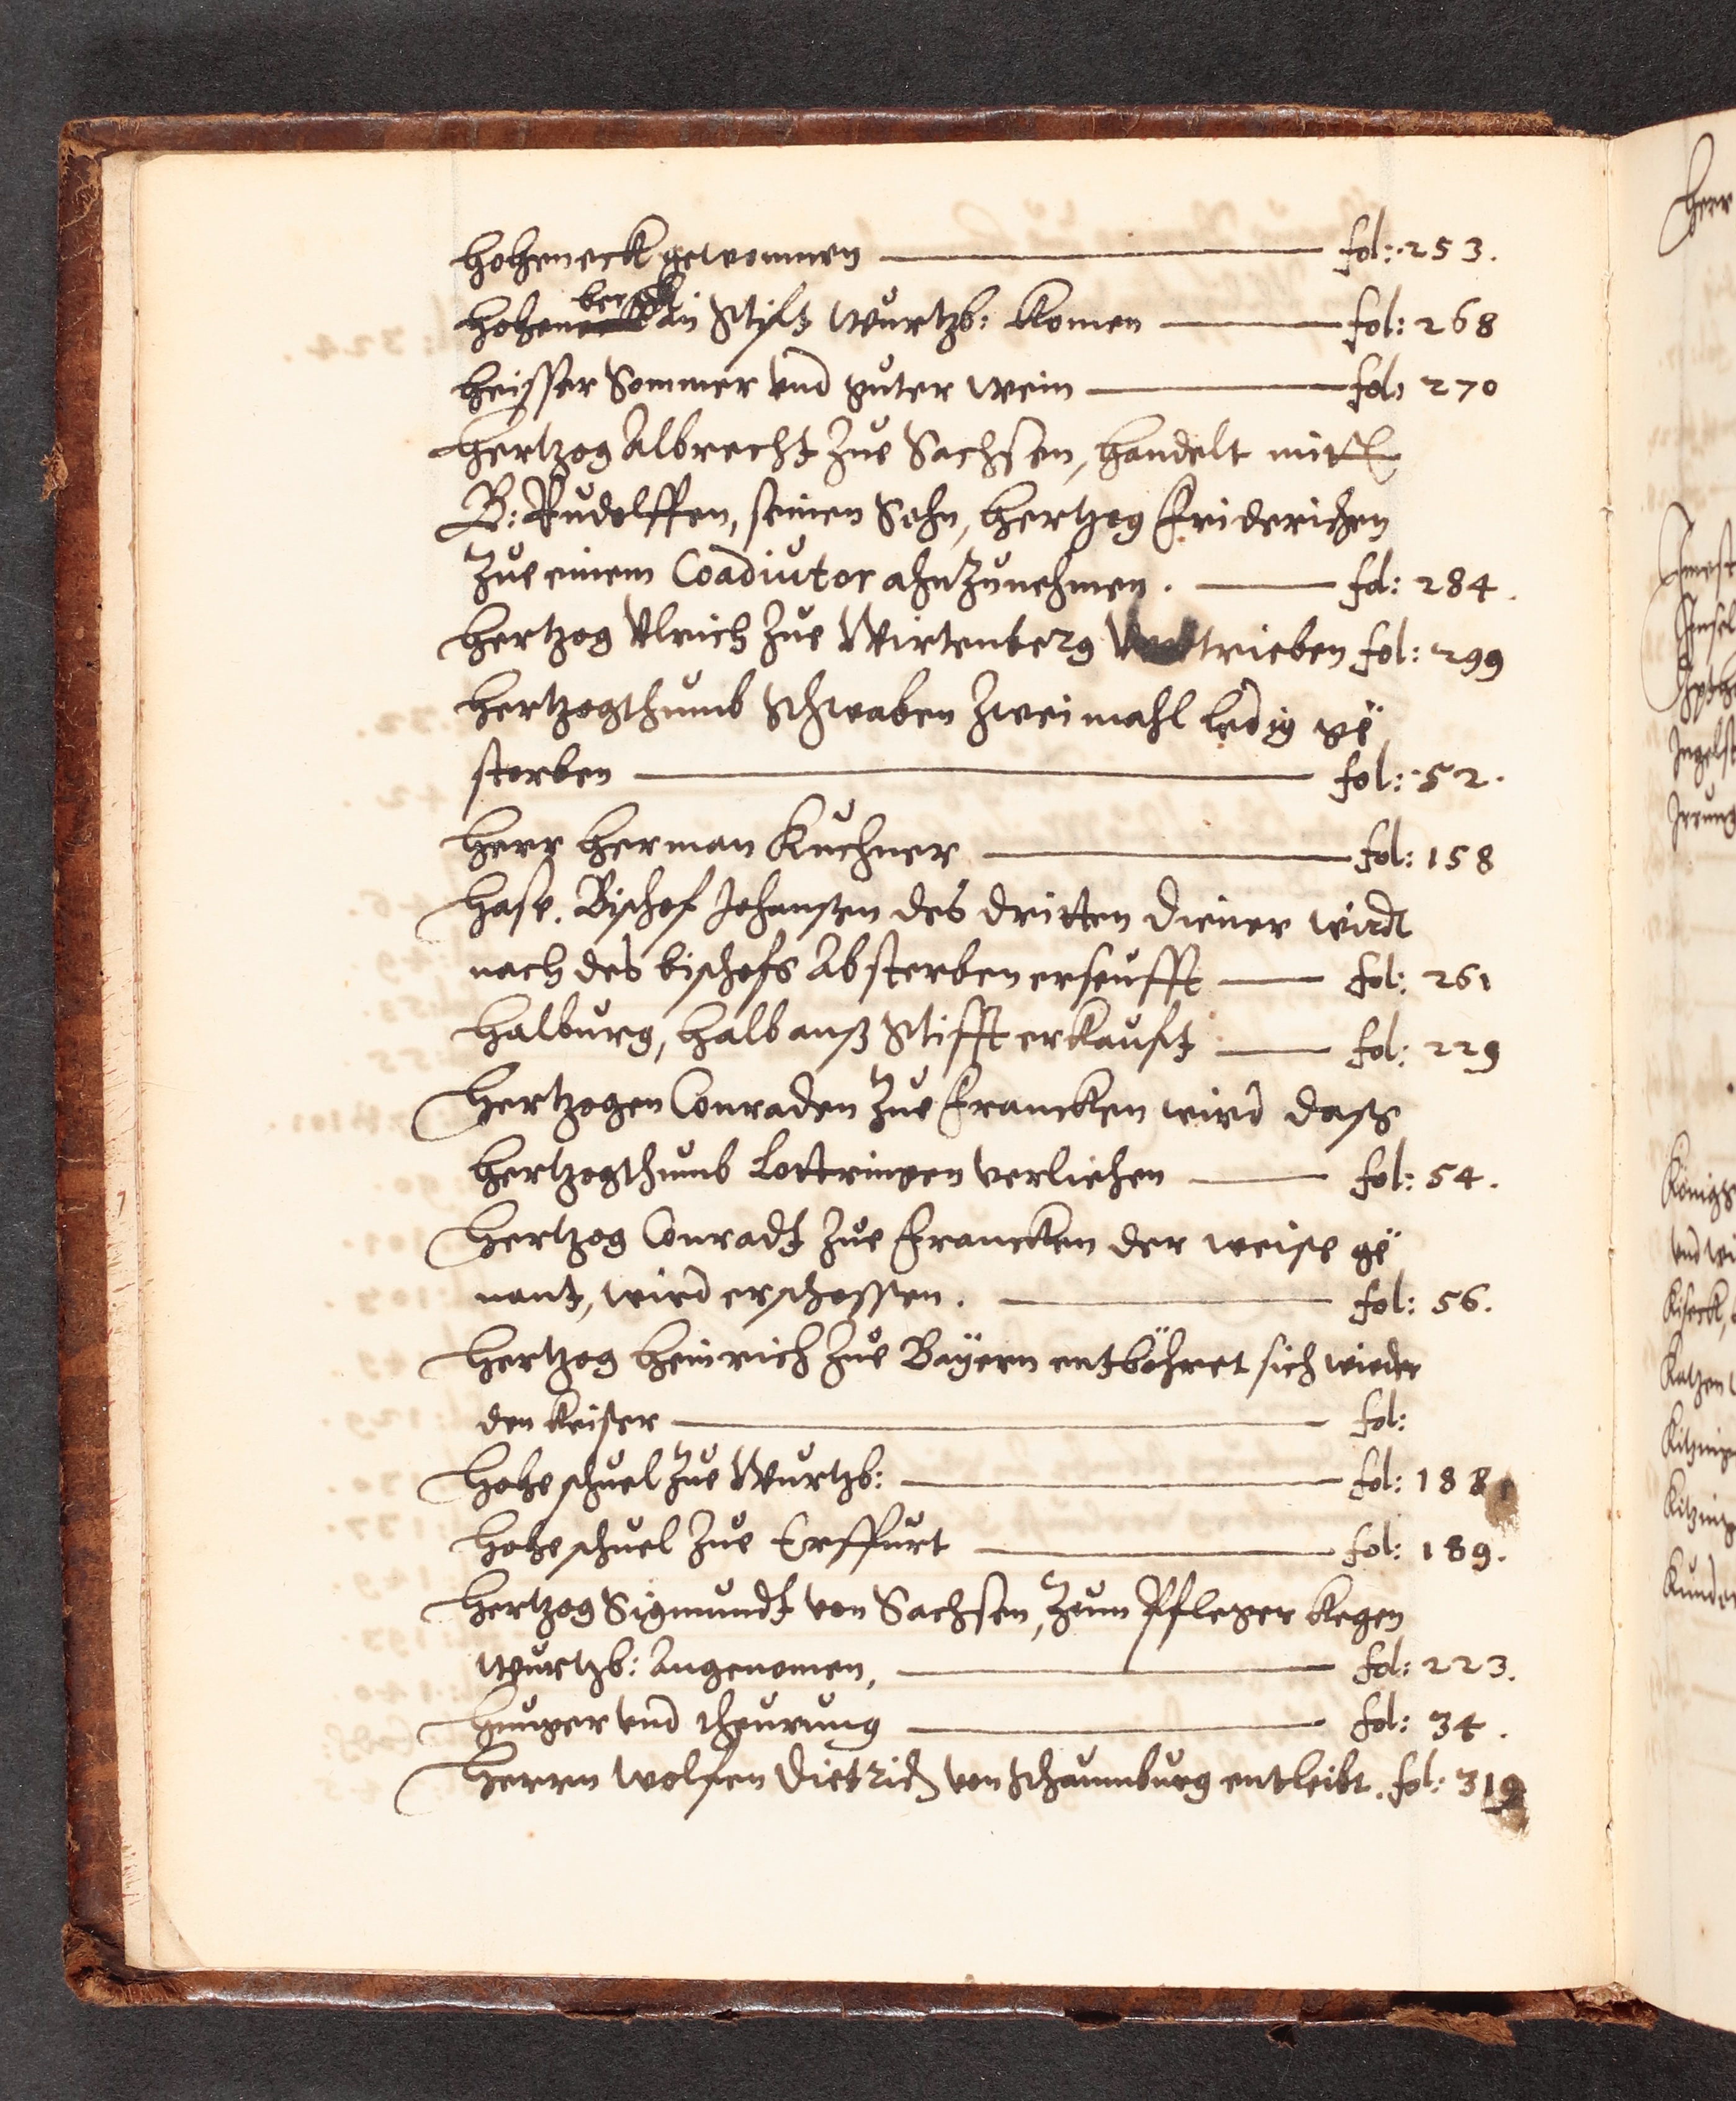 Hoheneck gewonnen fol: 253.
Hohenbergk an Stift Wurtzb: komen fol: 268
Heisser Sommer vnd guter wein fol: 270
Hertzog Albrecht Zue Sachsen, handelt mit
B: Rudolffen, seinen Sohn, Hertzog Friderichen
Zue einem Coadiutor ahnZunehmen. fol: 284.
Hertzog Vlrich Zue Wirtenberg Vertrieben fol: 299
Hertzogthumb Schwaben Zweimahl ledig ge
storben fol: 52.
Herr Herman Kuchner fol: 158
Hase. Bischof Johansen des dritten diener wirdt
nach des bischofs Absterben erseufft fol: 261
Halburg, halb anß Stifft erkauft fol: 229
Hertzogen Conraden Zue Francken wird daß
Hertzogthumb Lottringen verliehen fol: 54.
Hertzog Conradt Zue Francken der weise ge
nant, wird erschossen. fol: 56.
Hertzog Heinrich Zue Baÿern entböhret sich wieder
den Keiser fol:
Hohe schuel Zue Wurtzb: fol: 188
Hohe schuel Zue Erffurt fol: 189.
Hertzog Sigmundt von Sachsen, Zum Pfleger kegen
Wurtzb: Angenomen, fol: 223.
Hunger vnd theurung fol: 34.
Herrn Wolfen Dietrich von Schaumburg entleibt. fol: 319